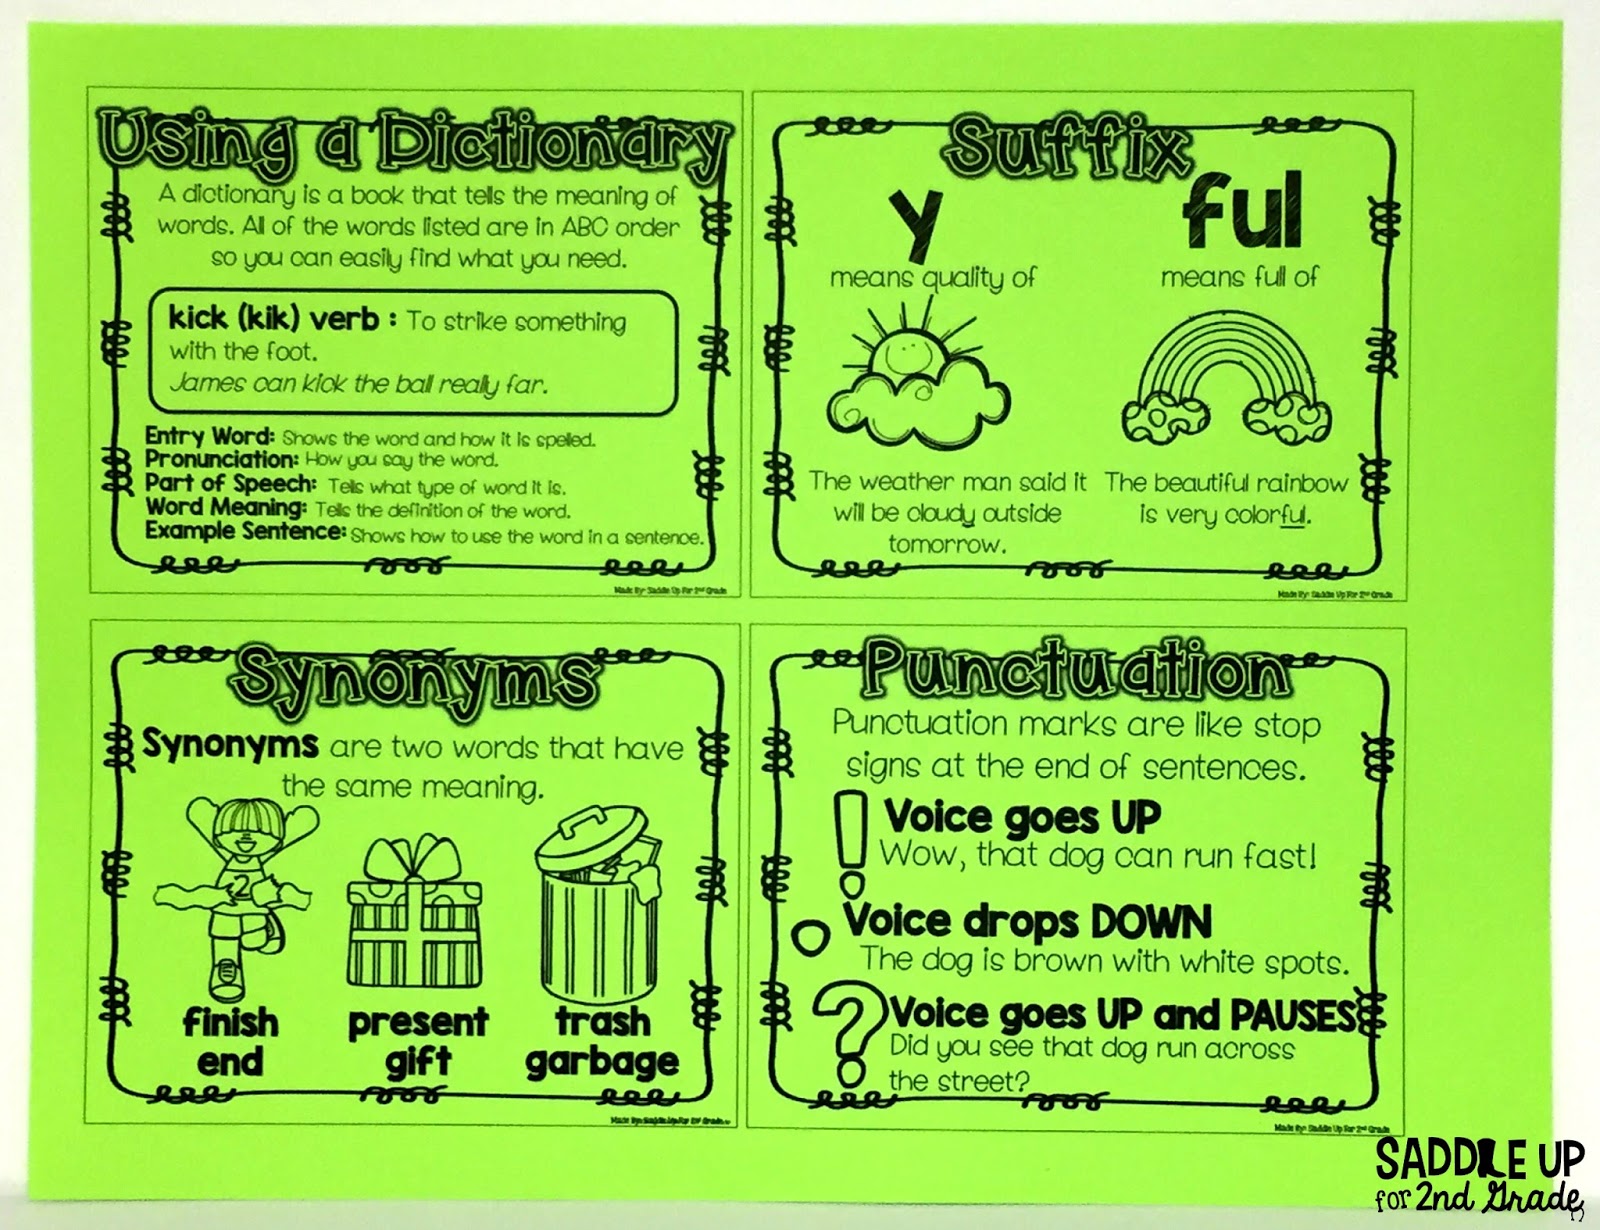 Using a Dictionary
A dictionary is a book that tells the meaning of
words. All of the words listed are in ABC order
so you can easily find what you need.
kick (kik) verb : To strike something
with the foot.
James can kick the ball really far.
Entry Word: Shows the word and how it is spelled.
Pronunciation: How you say the word.
Part of Speech: Tells what type of word it is.
Word Meaning: Tells the definition of the word.
Example Sentence: Shows how to use the word in a sentence.
Made By: Saddle Up For 2nd Grade
Suffix
y
means quality of
The weather man said it
will be cloudy outside
tomorrow.
ful
means full of
The beautiful rainbow
is very colorful.
Made By: Saddle Up For 2nd Grade
Synonyms
Synonyms are two words that have
the same meaning.
2
finish
end
present
gift
trash
garbage
Made By: Saddle Up For 2nd Grade
Punctuation
Punctuation marks are like stop
signs at the end of sentences.
! Voice goes UP
Wow, that dog can run fast!
. Voice drops DOWN
The dog is brown with white spots.
? Voice goes UP and PAUSES
Did you see that dog run across
the street?
Made By: Saddle Up For 2nd Grade
SADDLE UP
for 2nd Grade